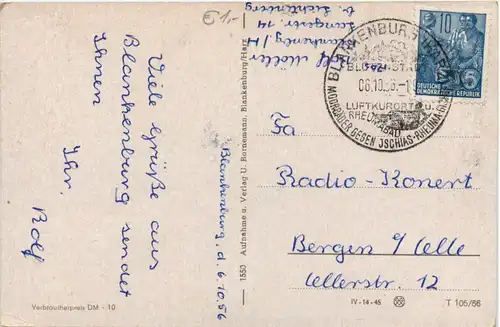 Viele Grüße aus
Blankenburg sendet
Ihnen
Ihr.
Rolf
Blankenburg, d. 6.10.56
€1,-
Rolf Müller
Blankenbg/H
Langestr. 14
b. Lichtenberg
1550 Aufnahme u. Verlag U. Bornemann, Blankenburg/Harz
BLANKENBURG
06.10.56.-1
LUFTKURORT U.
RHEUMABAD
MOORBÄDER GEGEN ISCHIAS-RHEUMA
10
DEUTSCHE
DEMOKRATISCHE REPUBLIK
Fa
Radio-Konert
Bergen b/Celle
Cellerstr. 12
Verbraucherpreis DM -10
IV-14-45
T 105/56